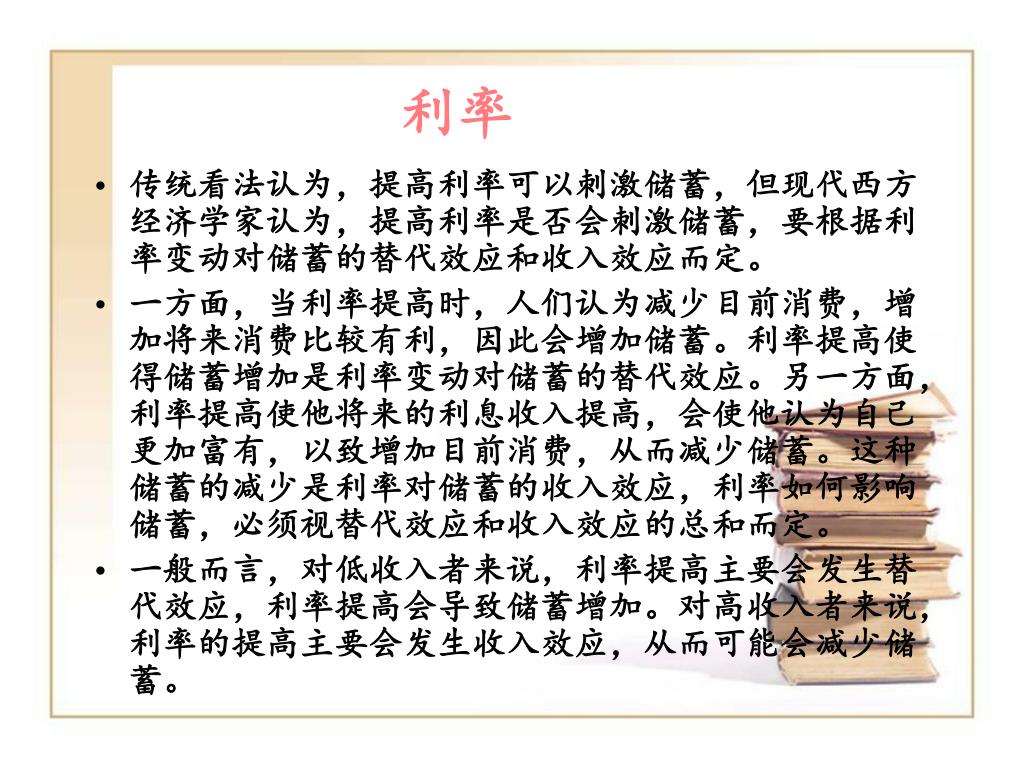 利率
• 传统看法认为，提高利率可以刺激储蓄，但现代西方
经济学家认为，提高利率是否会刺激储蓄，要根据利
率变动对储蓄的替代效应和收入效应而定。
• 一方面，当利率提高时，人们认为减少目前消费，增
加将来消费比较有利，因此会增加储蓄。利率提高使
得储蓄增加是利率变动对储蓄的替代效应。另一方面，
利率提高使他将来的利息收入提高，会使他认为自己
更加富有，以致增加目前消费，从而减少储蓄。这种
储蓄的减少是利率对储蓄的收入效应，利率如何影响
储蓄，必须视替代效应和收入效应的总和而定。
• 一般而言，对低收入者来说，利率提高主要会发生替
代效应，利率提高会导致储蓄增加。对高收入者来说，
利率的提高主要会发生收入效应，从而可能会减少储
蓄。